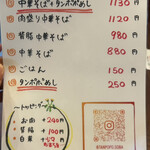 中華そば+タンポポめし 1130円
肉盛り中華そば 1120円
背脂中華そば 980円
中華そば 880円
ごはん 150円
タンポポめし 250円
トッピング
お肉 +240円
背脂 +100円
白菜